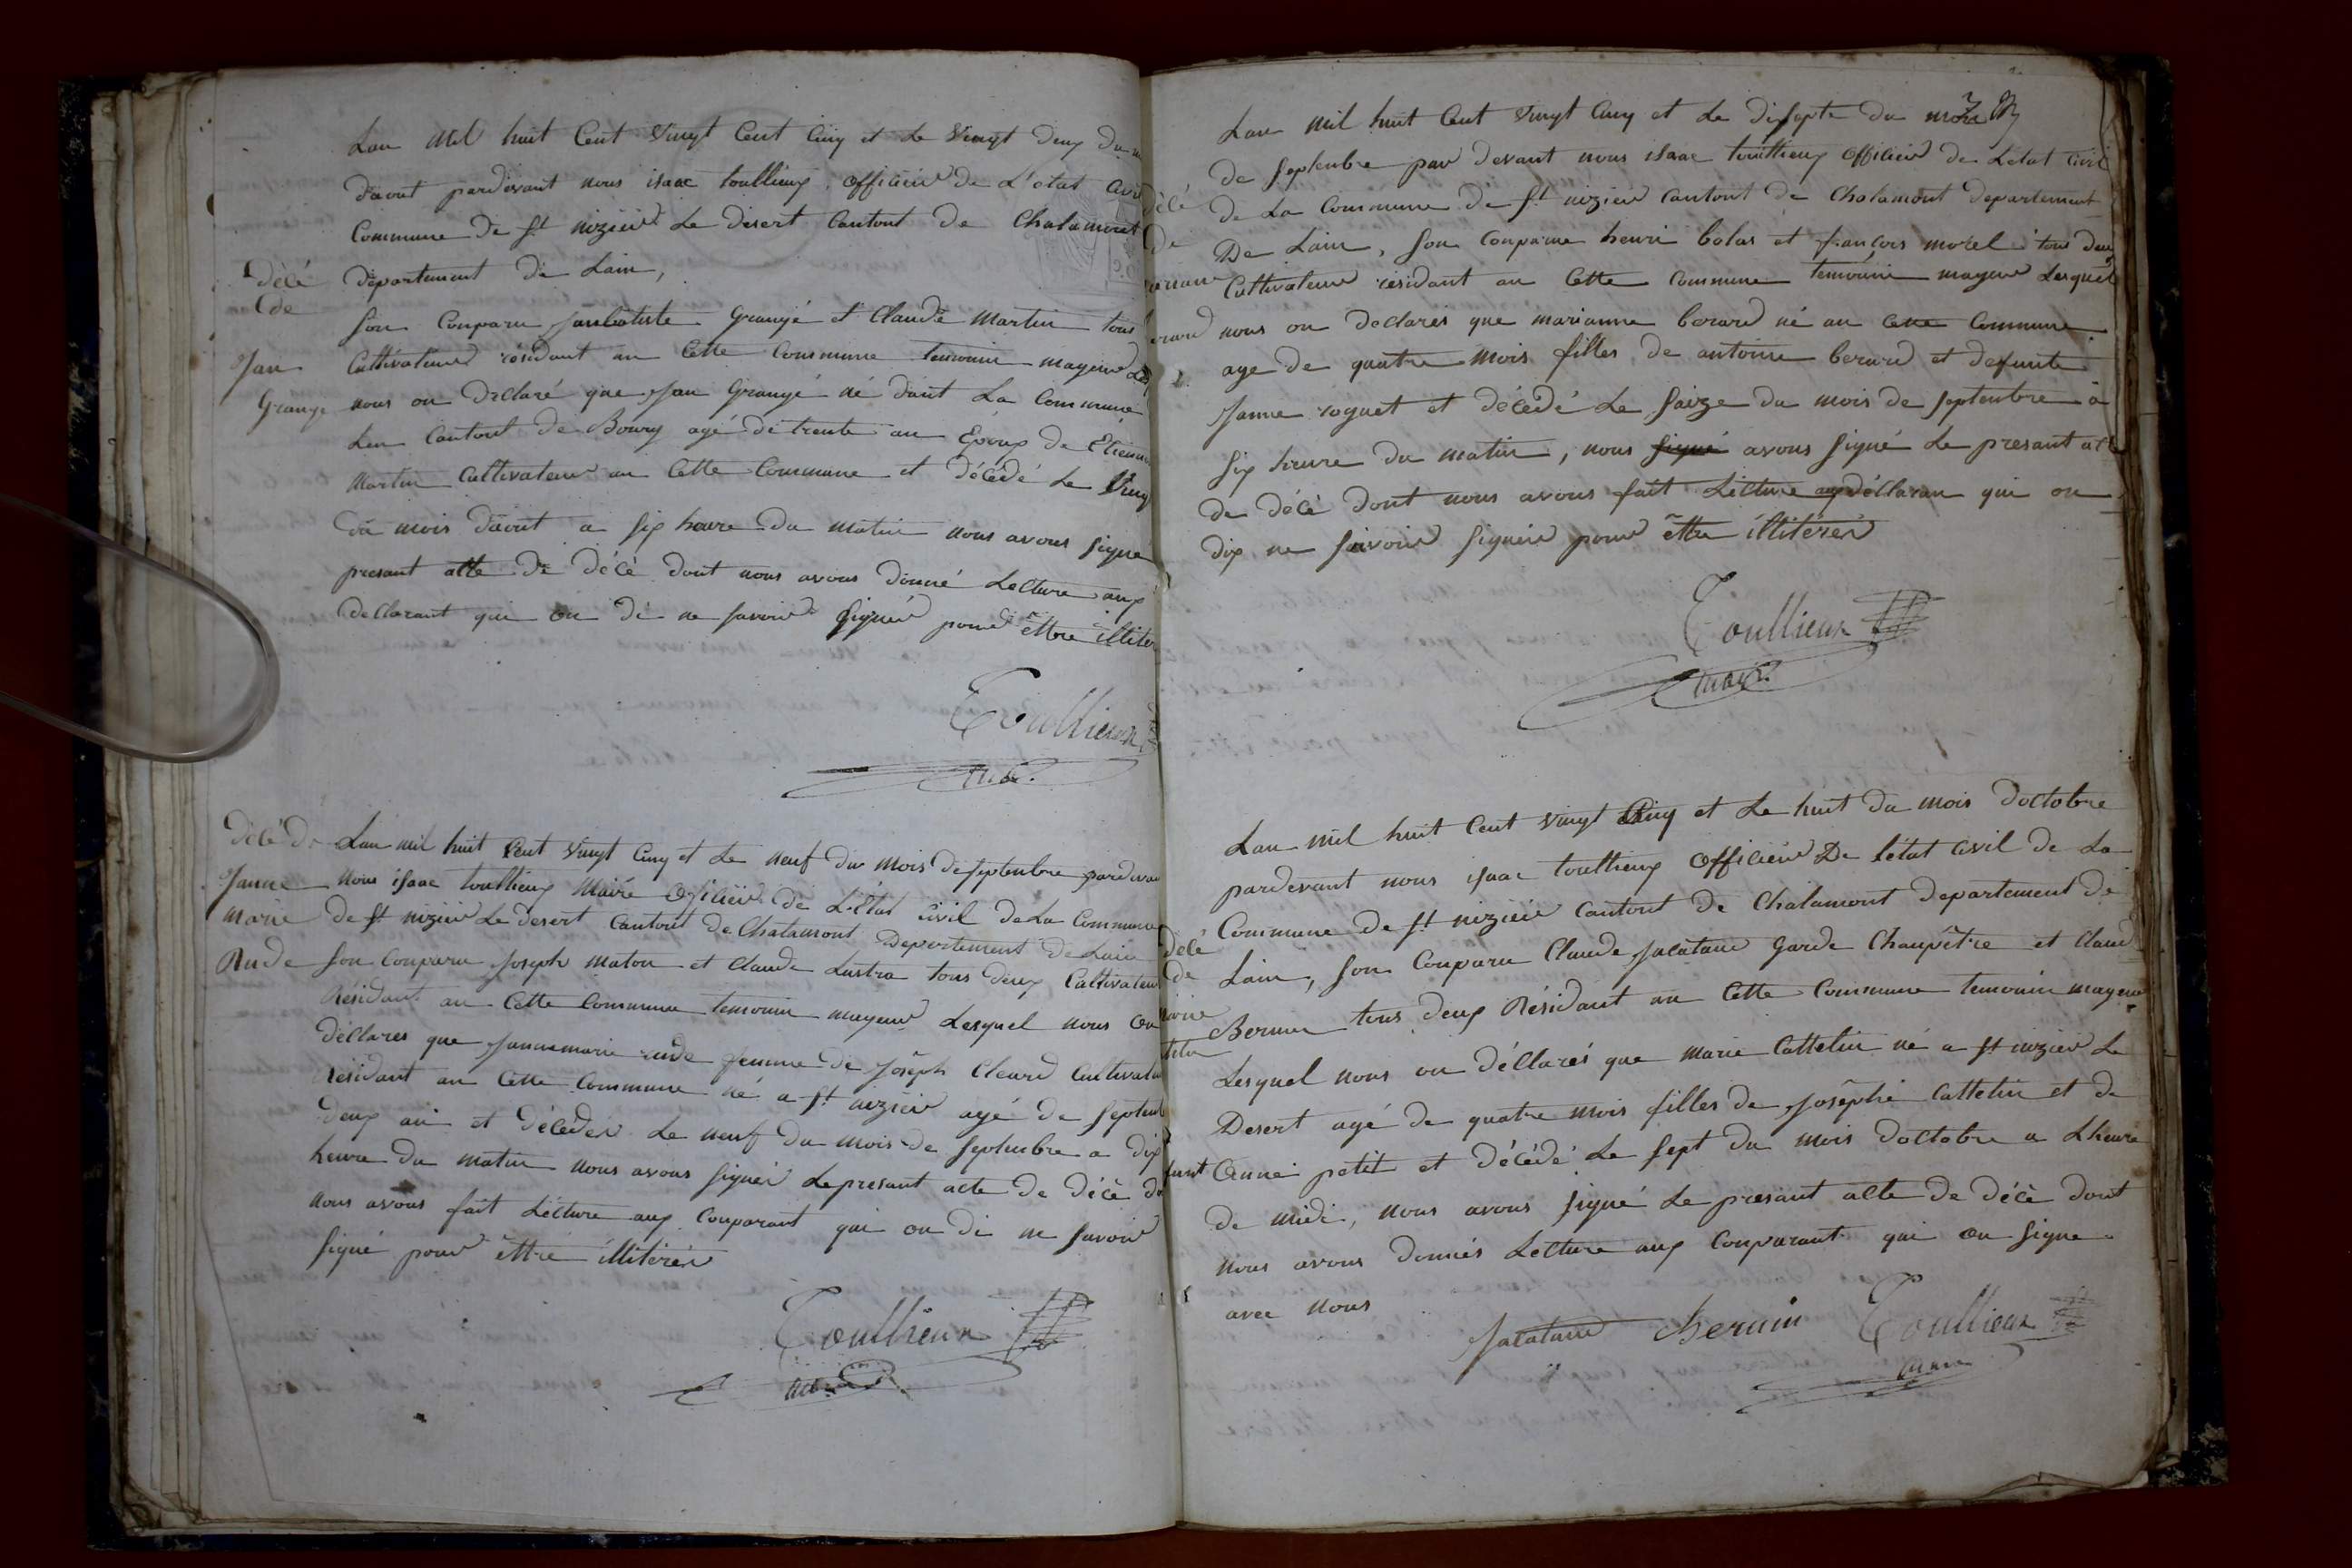 Lan Mil huit Cent Vingt Cent Cinq et Le Vingt deux du
daout pardevant nous isaac toullieux officier de L'etat Civil
Commune de St nizier Le desert Cantont de Chalamont
département de Lain,
décé
de
Jan
Grange
Son Conparu Janbatiste Grangé et Claude Martin tous
Cultivateur résidant an Cette Commune temouin mayeur
nous on Déclaré que Jan Grangé né dant La Commune
Cantont de Bourg agé de trente an Epoux de Etienne
Martin Cultivateur an Cette Commune et décédé Le Ving
du mois daout a six heure du matin nous avons signé
presant atte de décé dont nous avons donné Lecture aux
declarant qui on di ne savoir signér pour êttre illiter
Toullieux
décé de
Janne
Marie
Rude
Lan mil huit Cent Vingt Cinq et Le neuf du mois de septenbre pardevan
Nous isaac toullieux Maire officier de L'État Civil de La Commune
de St nizier Le desert Cantont de Chalamont Departement de Lain
Son Conparu Joseph maton et Claude Lustra tous deux Cultivateur
Résidant an Cette Commune temouin mayeur Lesquel nous on
déClares que Jannemarie rude femme de Joseph Cleard Cultivateur
Résidant an Cette Commune né a St nizier agé de septent
deux an et décéder Le neuf du mois de septenbre a dix
heure du matin nous avons signér Le presant acte de décé do
nous avons fait Lécture aux Conparant qui on di ne savoir
signé pour êttre illitérér
Toullieux
Lan mil huit Cent Vingt Cinq et Le disepte du mois
de septenbre par devant nous isaac toullieux officier de Létat Civil
de La Commune de St nizier Cantont de Chalamont departement
De Lain, Son Conparue henri bolas et françois morel tous deux
Cultivateur résidant an Cette Commune temouin mayeur Lesquel
nous on declarés que marianne berard né an Cette Commune
age de quatre mois filles de antoine berard et defunte
Janne roguet et décédé Le saize du mois de septenbre a
six heure du matin, nous signé avons signé Le presant atte
de décé dont nous avons fait Lecture aux déclaran qui on
dix ne savoir signér pour êttre illitérér
Toullieux
maire
décé
de
Lan mil huit Cent vingt Cinq et Le huit du mois doctobre
pardevant nous isaac toullieux officier De létat Civil de La
Commune de St nizier Cantont de Chalamont Departement de
Lain, Son Conparu Claude Jacatare Garde Chanpêtre et Claude
Bernin tous deux Résidant an Cette Commune temouin mayeur
Lesquel nous on déClarés que marie Cattelin né a St nizier Le
Desert agé de quatre mois filles de Joséphe Cattelin et de
Anne petit et décédé Le sept du mois doctobre a Lheure
de midi, nous avons signé Le presant atte de décé dont
nous avons donnés Lecture aux Conparant qui on signe
avec nous
Bernin Toullieux
maire